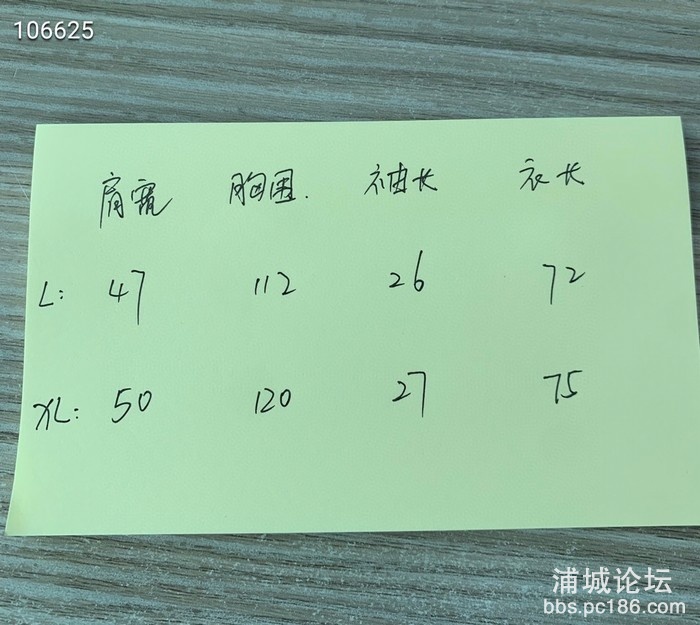 106625
肩宽 胸围. 袖长 衣长
L: 47 112 26 72
XL: 50 120 27 75
浦城论坛
bbs.pc186.com